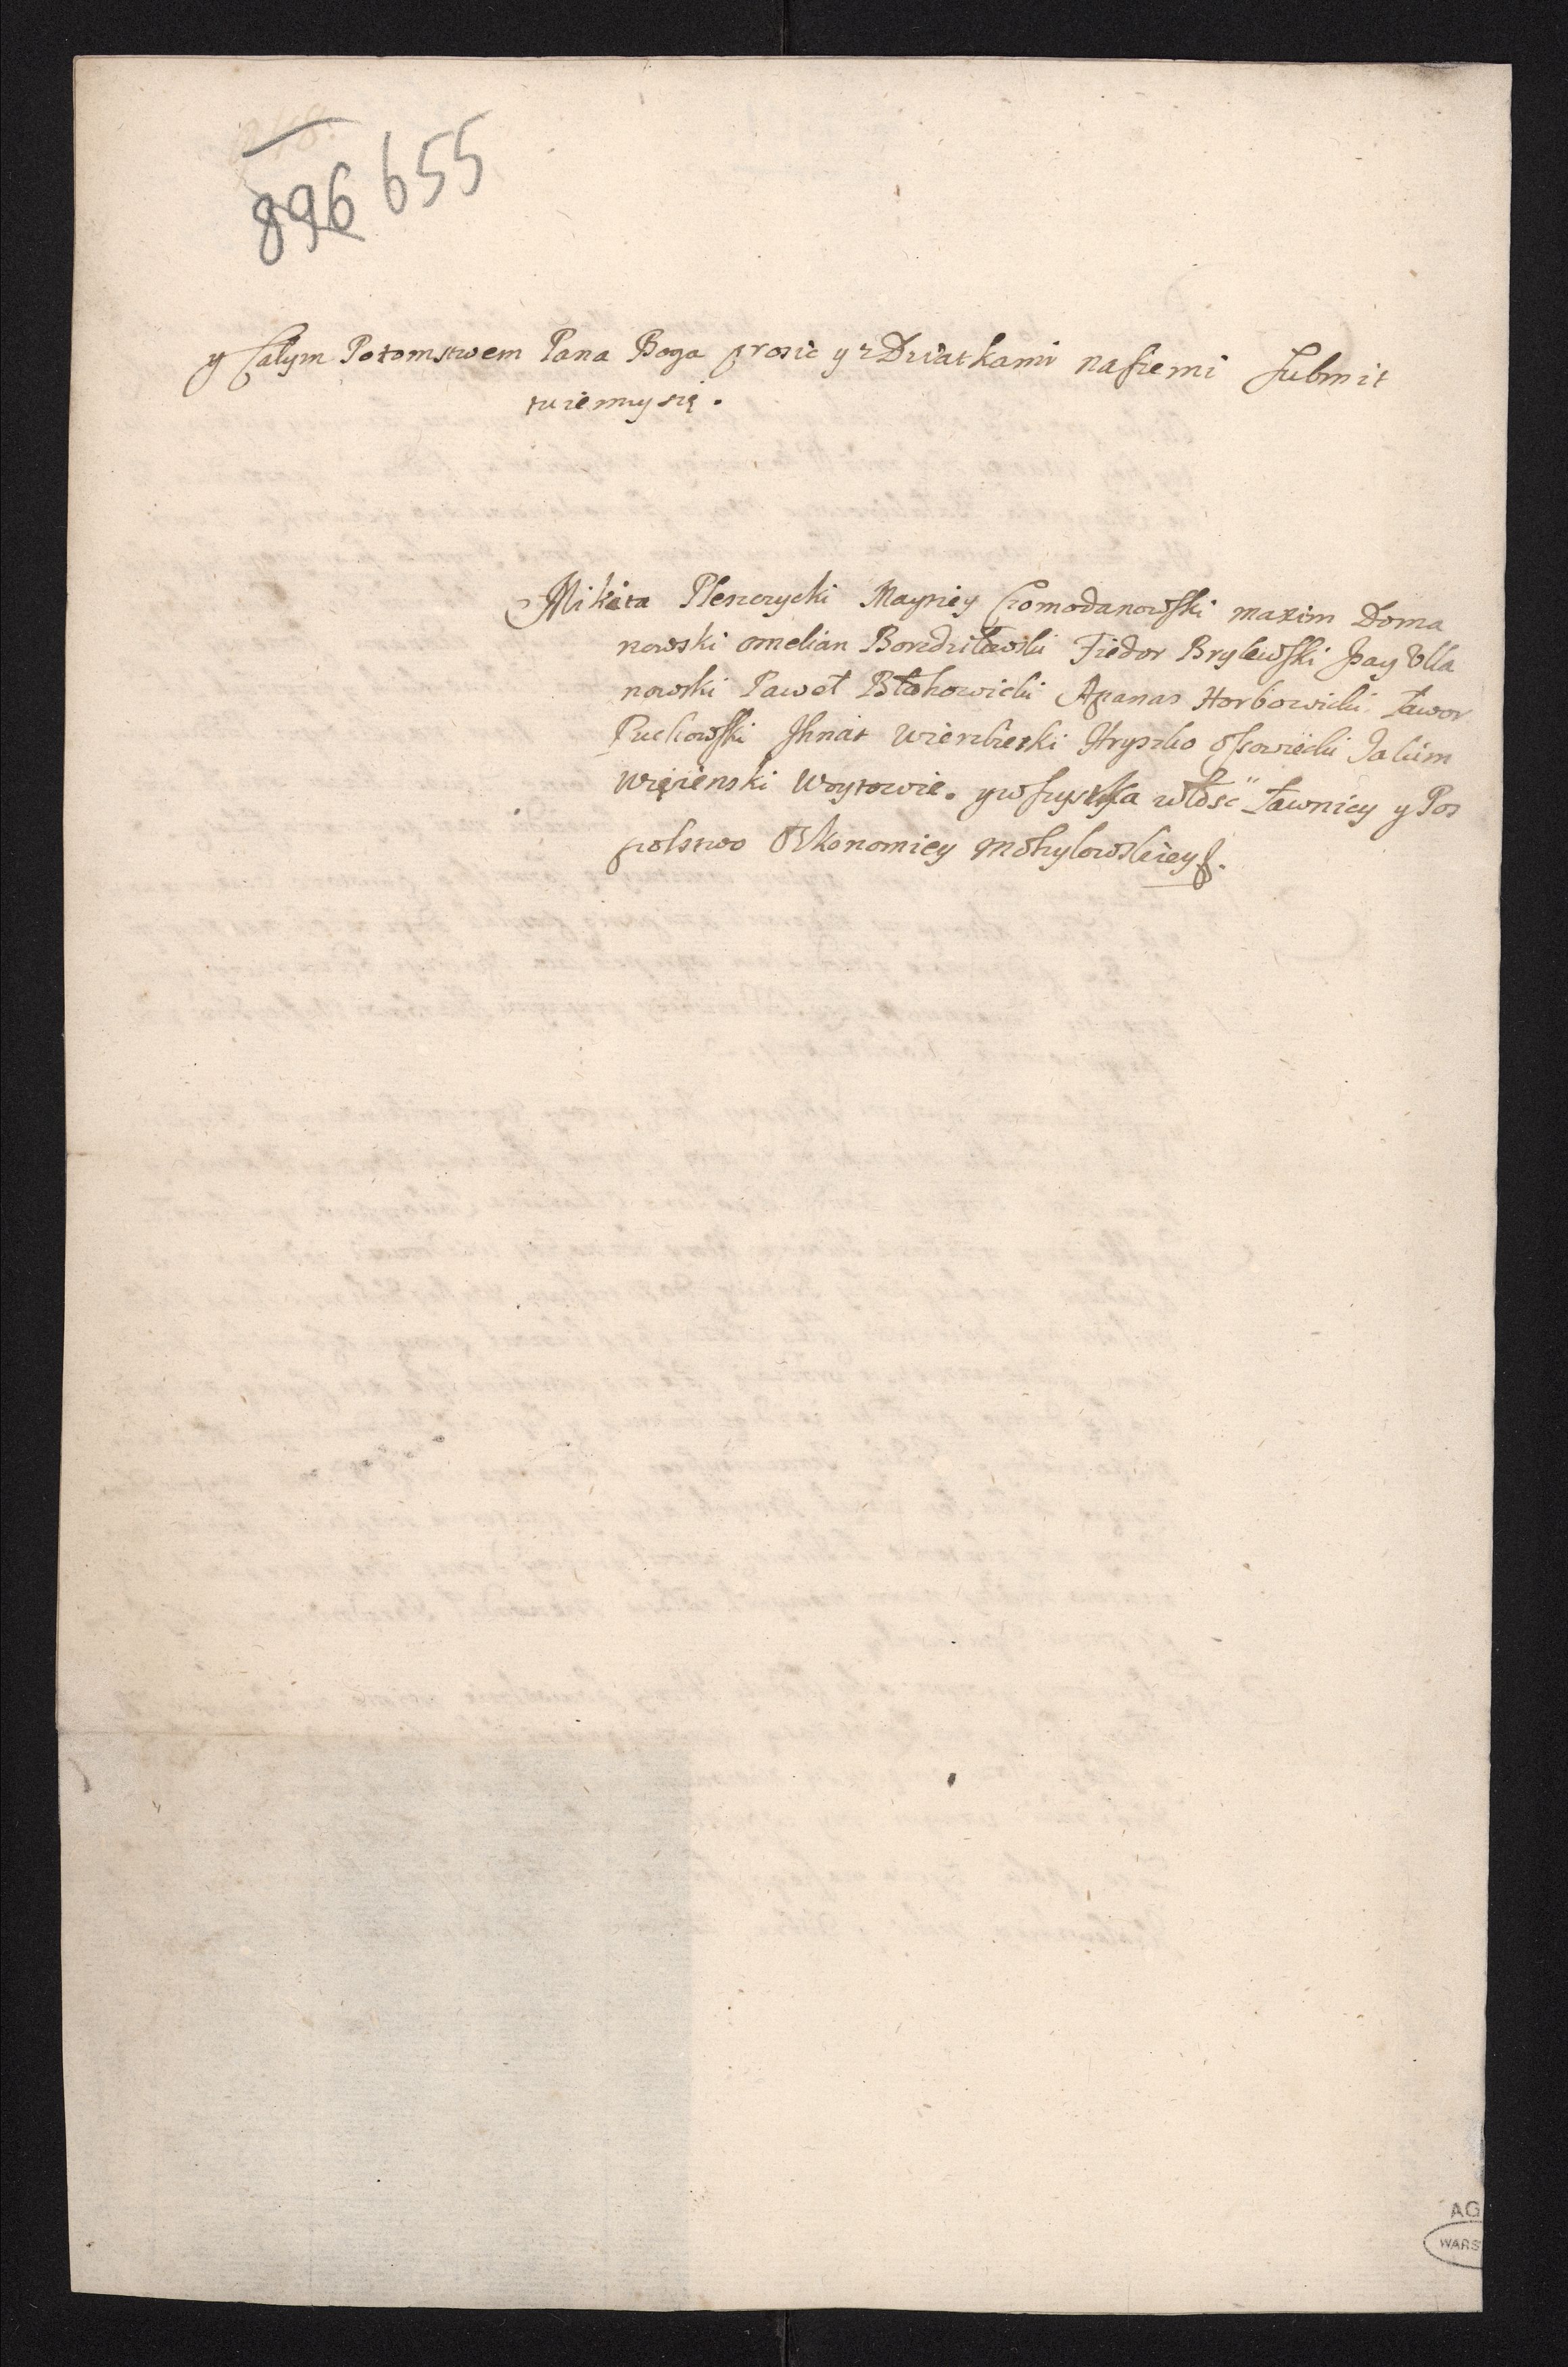 896 655
y Całym Potomstwem Pana Boga prosic y z Dziatkami naszemi Submit
tuiemy się.
Mikita Pleszczycki Maysiey Czomodanowski maxim Doma
nowski omelian Bondziłowski Fiedor Brylewski Jsay Ulla
nowski Paweł Błahowicki Apanas Horbowicki Ławor
Puckowski Jhnat Wierzbieski Hryszko Ossowiecki Jakim
Więzienski Woytowie. y wszystka włość Ławnicy y Pos
polstwo Ekonomiey Mohylowskiey
AG
WARS